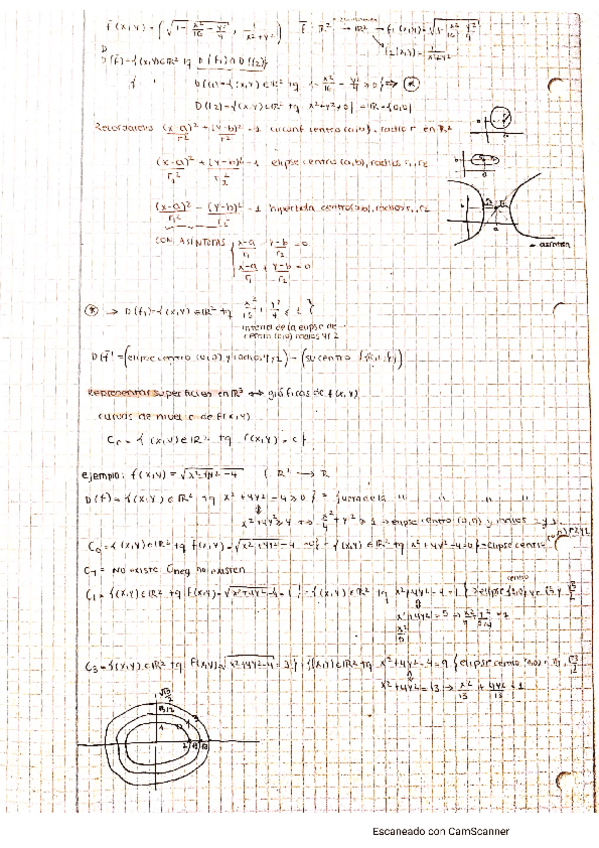 f̄(x,y) = (√(1 - x²/16 - y²/4), 1/(x²+y²)) f̄: R² → R² → f₁(x,y) = √(1 - x²/16 - y²/4)
f₂(x,y) = 1/(x²+y²)
D(f̄) = {(x,y) ∈ R² tq D(f₁) ∩ D(f₂)}
D(f₁) = {(x,y) ∈ R² tq 1 - x²/16 - y²/4 ≥ 0} ⇒ *
D(f₂) = {(x,y) ∈ R² tq x²+y² ≠ 0} = R² - {(0,0)}
Recordatorio (x-a)²/r² + (y-b)²/r² = 1 circunf centro (a,b), radio r en R²
(x-a)²/r₁² + (y-b)²/r₂² = 1 elipse centro (a,b), radios r₁, r₂
(x-a)²/r₁² - (y-b)²/r₂² = 1 hipérbola centro (a,b), radios r₁, r₂
CON ASÍNTOTAS { (x-a)/r₁ - (y-b)/r₂ = 0
(x-a)/r₁ + (y-b)/r₂ = 0
* → D(f₁) = {(x,y) ∈ R² tq x²/16 + y²/4 ≤ 1}
interior de la elipse de
centro (0,0) radios 4 y 2
D(f̄) = (elipse centro (0,0) y radio 4 y 2) - (su centro {(0,0)})
Representar superficies en R³ ↔ gráficas de f(x,y)
curvas de nivel c de f(x,y)
C_c = {(x,y) ∈ R² tq f(x,y) = c}
ejemplo: f(x,y) = √(x²+4y²-4) f: R² → R
D(f) = {(x,y) ∈ R² tq x²+4y²-4 ≥ 0} = fuera de la " " " "
x²+4y² ≥ 4 ↔ x²/4 + y² ≥ 1 → elipse centro (0,0) y radios 2 y 1
C₀ = {(x,y) ∈ R² tq f(x,y) = √(x²+4y²-4) = 0} = {(x,y) ∈ R² tq x²+4y²-4 = 0} = elipse centro
(0,0) r 2 y 1
NO EXISTE neg no existen
C₁ = {(x,y) ∈ R² tq f(x,y) = √(x²+4y²-4) = 1} = {(x,y) ∈ R² tq x²+4y²-4 = 1} elipse centro (0,0) r √5 y √5/2
x²+4y² = 5 → x²/5 + y²/(5/4) = 1
C₃ = {(x,y) ∈ R² tq f(x,y) = √(x²+4y²-4) = 3} = {(x,y) ∈ R² tq x²+4y²-4 = 9} elipse centro (0,0) r √13, √13/2
x²+4y² = 13 → x²/13 + 4y²/13 = 1
Escaneado con CamScanner